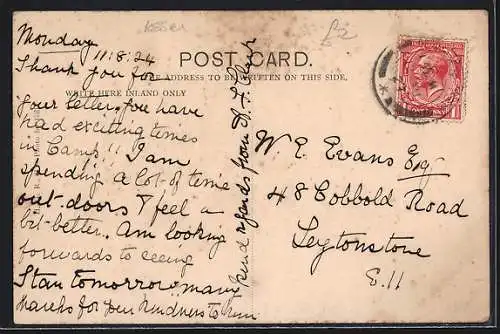 Essex
£2
Monday
11.8.24
POST CARD.
THE ADDRESS TO BE WRITTEN ON THIS SIDE.
WRITE HERE INLAND ONLY
Thank you for
your letter, you have
had exciting times
in Camp!! I am
spending a lot of time
out-doors & feel a
bit better. Am looking
forwards to seeing
Stan tomorrow, many
thanks for your kindness to him
kind regards from
W. E. Evans Esq
48 Cobbold Road
Leytonstone
E. 11